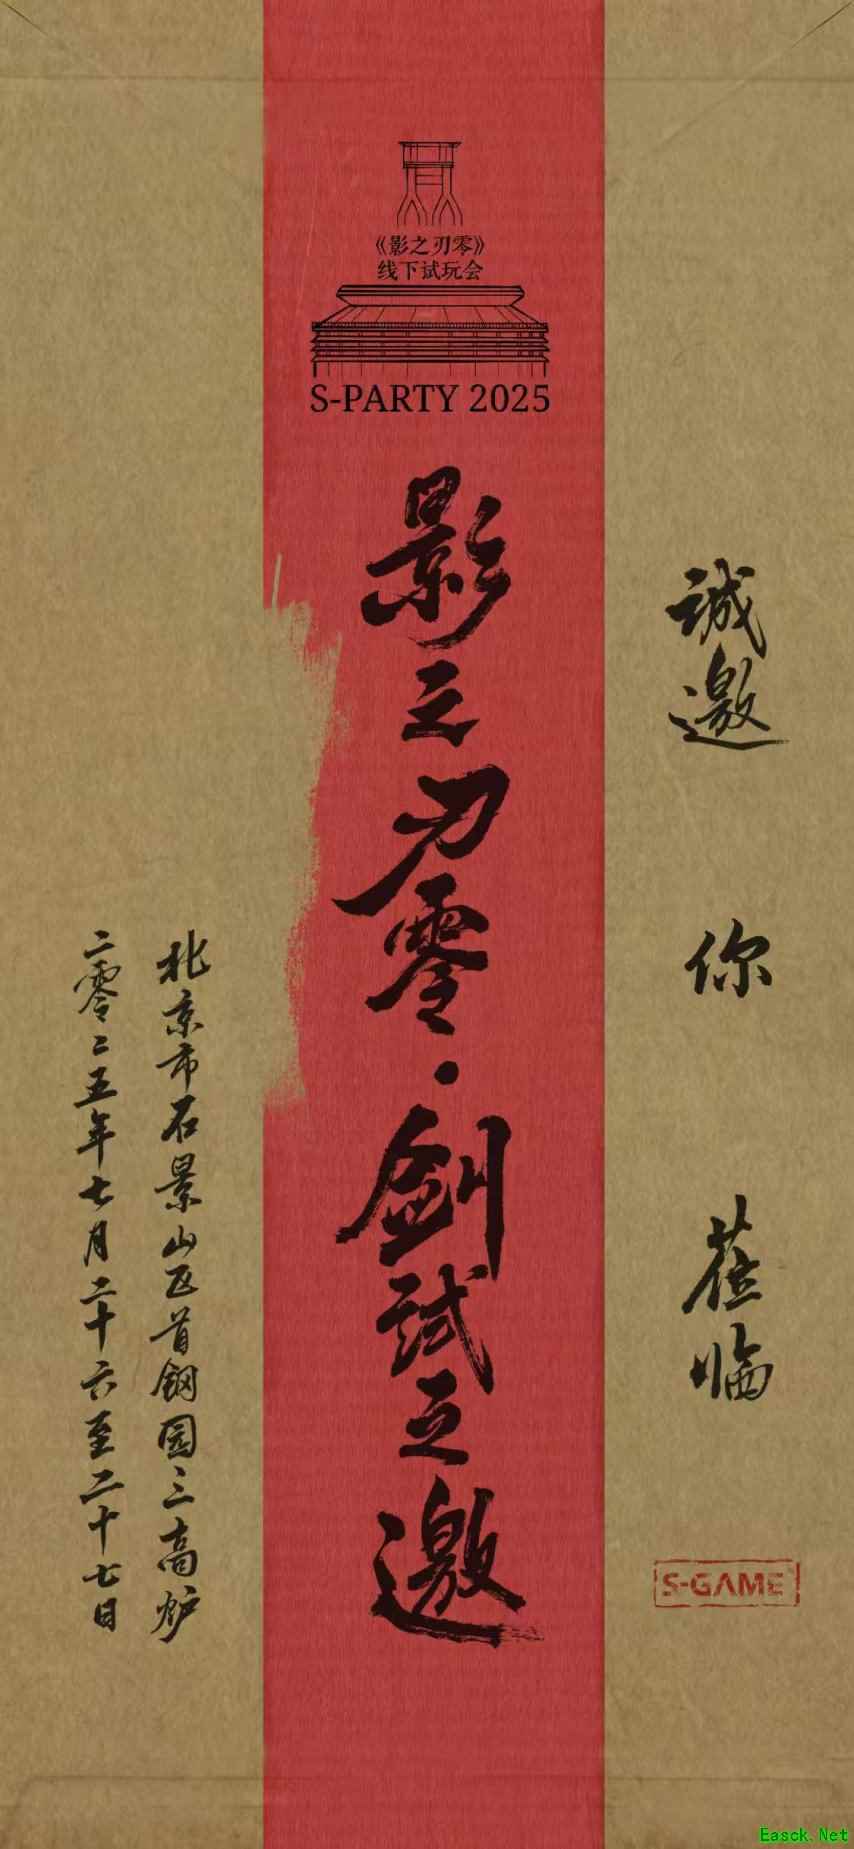 《影之刃零》
线下试玩会
S-PARTY 2025
誠邀 你 莅临
影之刃零·劍試之邀
北京市石景山区首钢园三高炉
二零二五年七月二十六至二十七日
S-GAME
Easck.Net